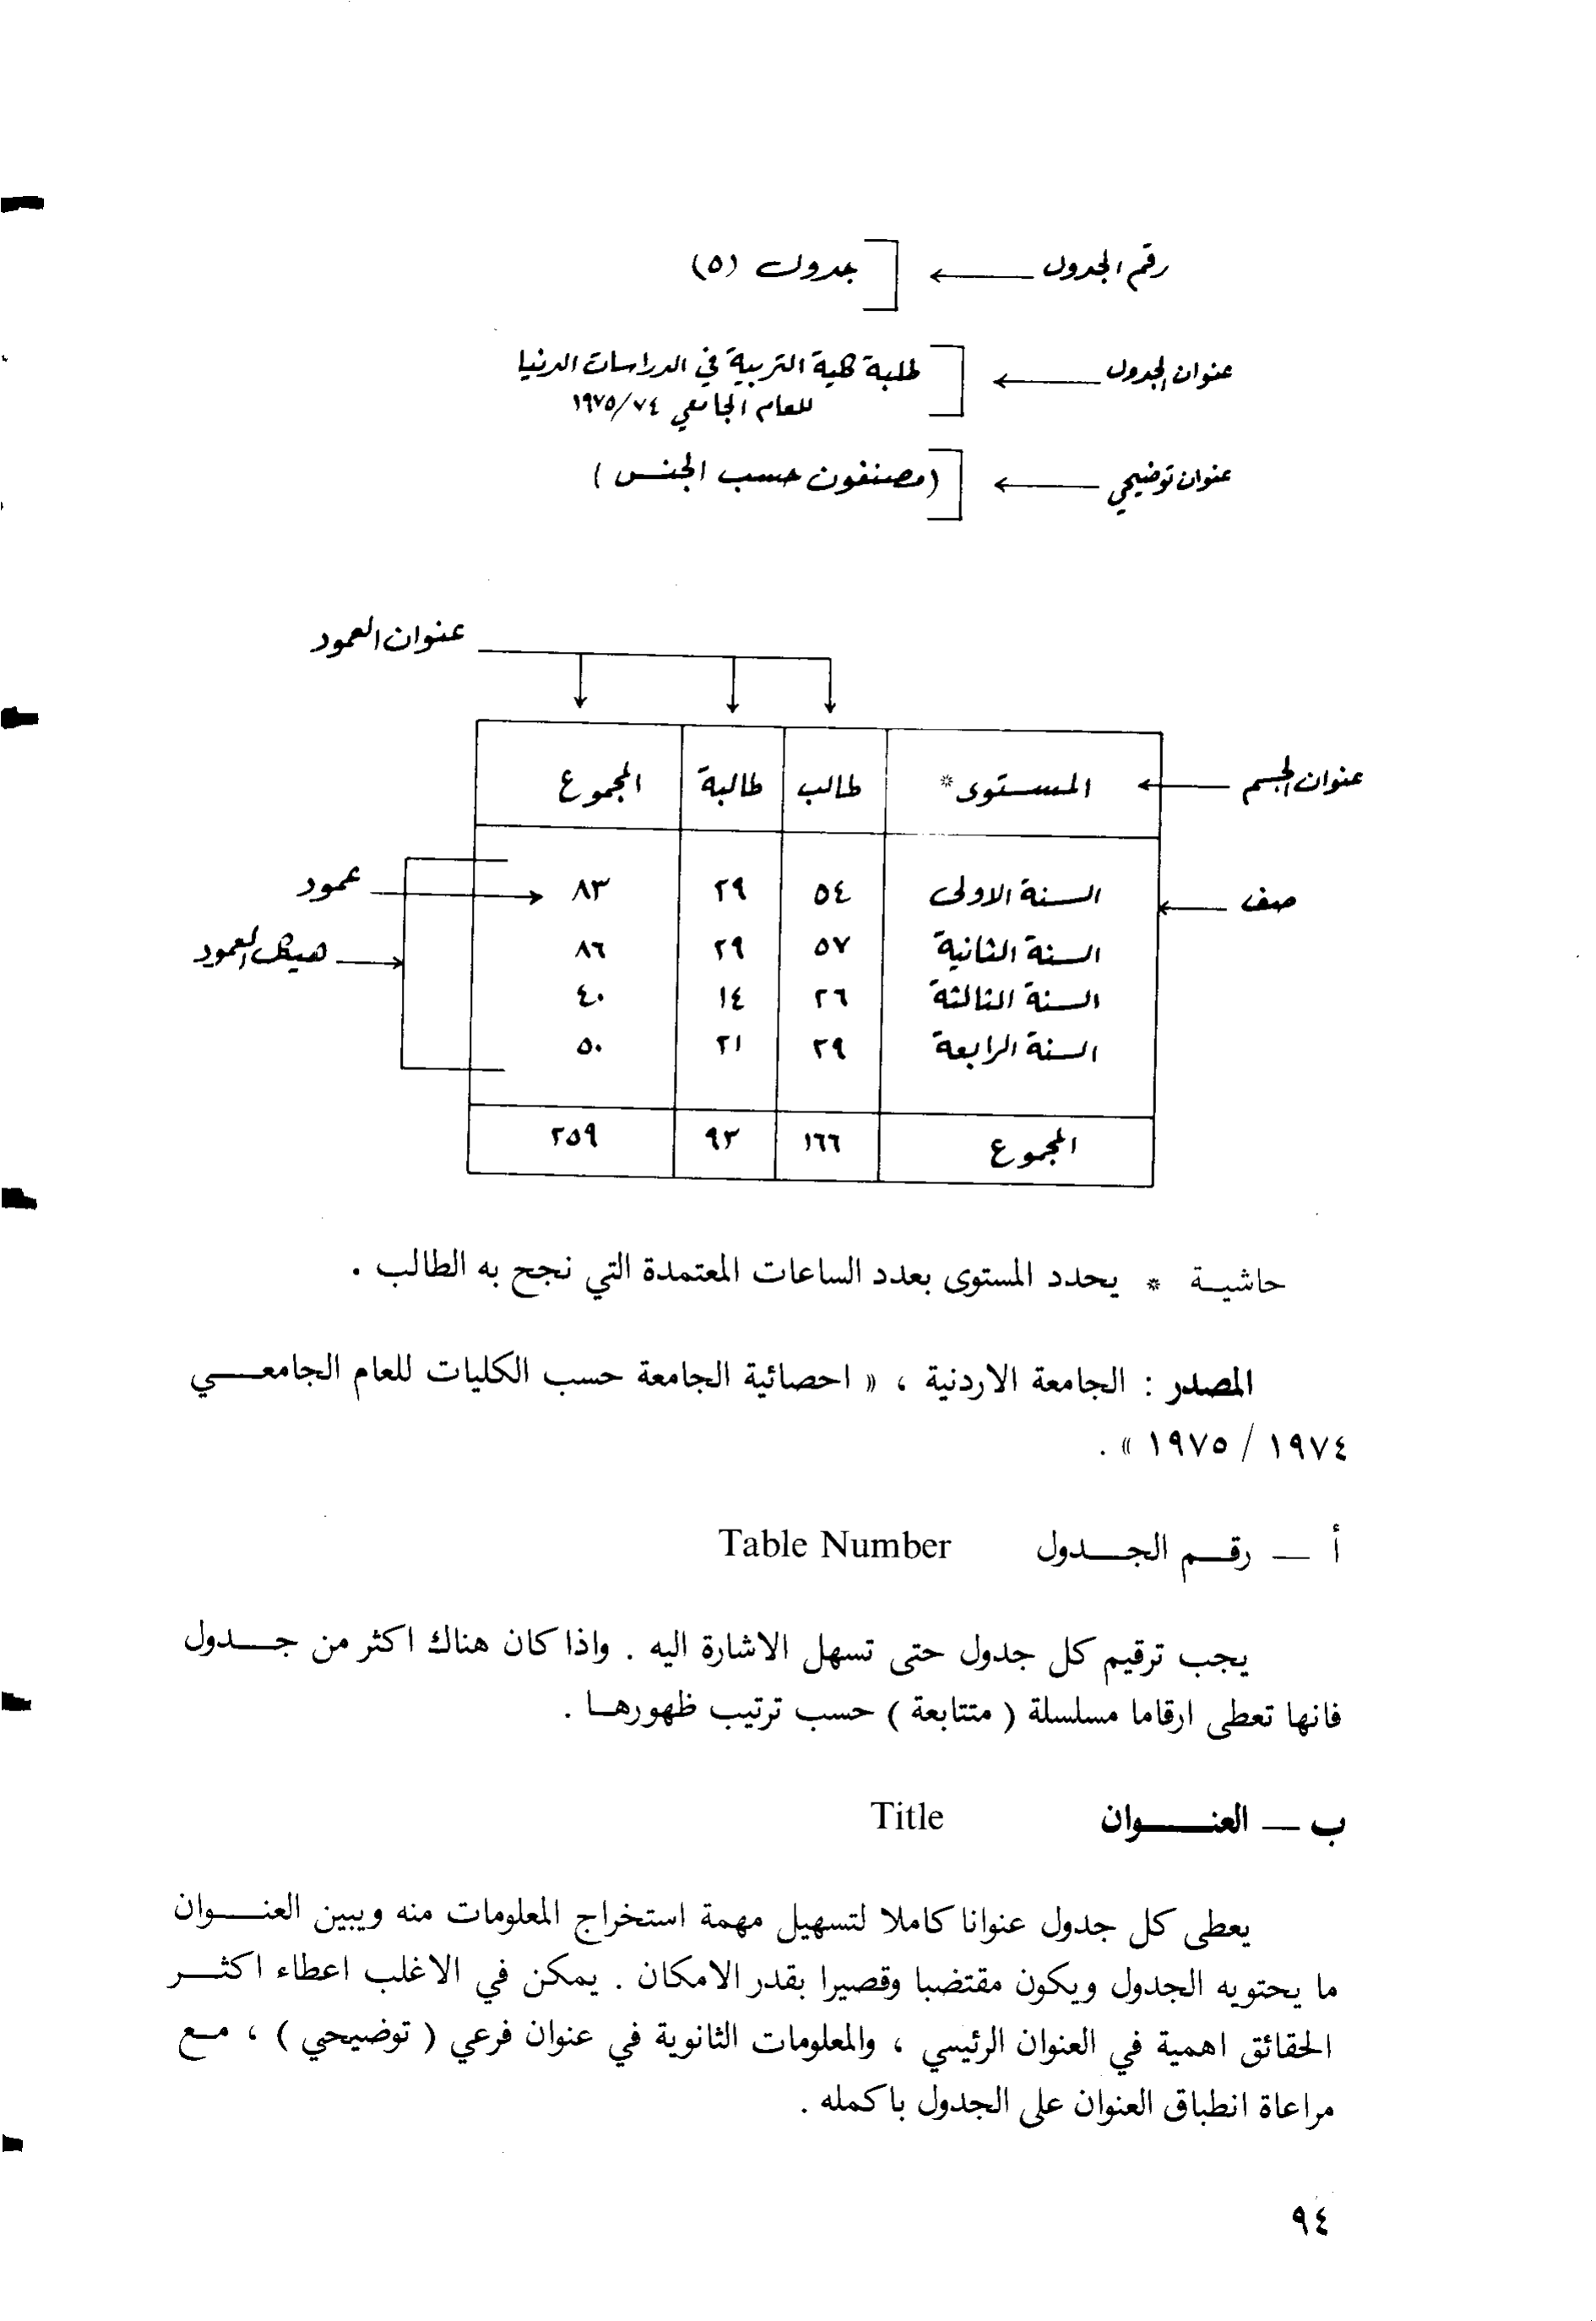 رقم الجدول
جدول (٥)
عنوان الجدول
طلبة كلية التربية في الدراسات الدنيا
للعام الجامعي ١٩٧٥/٧٤
عنوان توضيحي
(مصنفون حسب الجنس)
عنوان العمود
عنوان الجسم
المستوى* طالب طالبة المجموع
صف
السنة الاولى ٥٤ ٢٩ ٨٣
عمود
السنة الثانية ٥٧ ٢٩ ٨٦
هيكل العمود
السنة الثالثة ٢٦ ١٤ ٤٠
السنة الرابعة ٢٩ ٢١ ٥٠
المجموع ١٦٦ ٩٣ ٢٥٩
حاشية * يحدد المستوى بعدد الساعات المعتمدة التي نجح به الطالب .
المصدر : الجامعة الاردنية ، « احصائية الجامعة حسب الكليات للعام الجامعي
١٩٧٤ / ١٩٧٥ » .
أ — رقم الجدول Table Number
يجب ترقيم كل جدول حتى تسهل الاشارة اليه . واذا كان هناك اكثر من جدول
فانها تعطى ارقاما مسلسلة ( متتابعة ) حسب ترتيب ظهورها .
ب — العنوان Title
يعطى كل جدول عنوانا كاملا لتسهيل مهمة استخراج المعلومات منه ويبين العنوان
ما يحتويه الجدول ويكون مقتضبا وقصيرا بقدر الامكان . يمكن في الاغلب اعطاء اكثر
الحقائق اهمية في العنوان الرئيسي ، والمعلومات الثانوية في عنوان فرعي ( توضيحي ) ، مع
مراعاة انطباق العنوان على الجدول باكمله .
٩٤